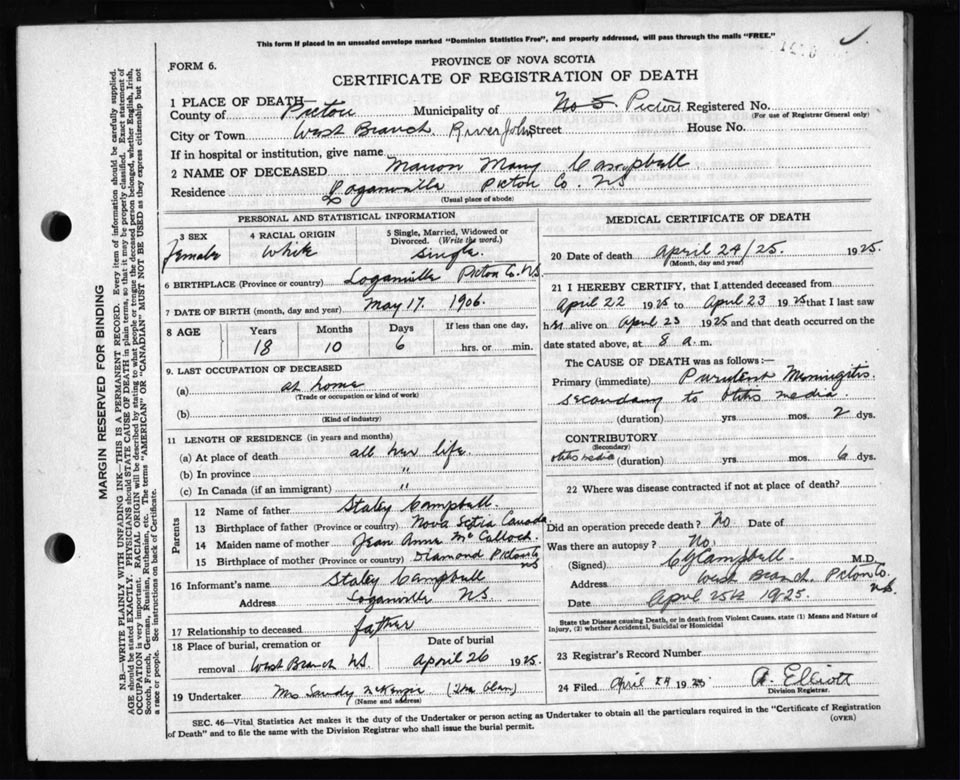 This form if placed in an unsealed envelope marked "Dominion Statistics Free", and properly addressed, will pass through the mails "FREE."
FORM 6.
PROVINCE OF NOVA SCOTIA
CERTIFICATE OF REGISTRATION OF DEATH
1 PLACE OF DEATH—
County of Pictou Municipality of No 5 Pictou Registered No.
(For use of Registrar General only)
City or Town West Branch River John Street House No.
If in hospital or institution, give name
2 NAME OF DECEASED Marion Mary Campbell
Residence Loganville Picton Co. NS
(Usual place of abode)
PERSONAL AND STATISTICAL INFORMATION
3 SEX 4 RACIAL ORIGIN 5 Single, Married, Widowed or Divorced. (Write the word.)
Female White Single
6 BIRTHPLACE (Province or country) Loganville Picton Co. N.S.
7 DATE OF BIRTH (month, day and year) May 17. 1906.
8 AGE Years Months Days If less than one day,
18 10 6 hrs. or min.
9. LAST OCCUPATION OF DECEASED
(a) at home
(Trade or occupation or kind of work)
(b)
(Kind of industry)
11 LENGTH OF RESIDENCE (in years and months)
(a) At place of death all her life.
(b) In province "
(c) In Canada (if an immigrant) "
Parents
12 Name of father Staley Campbell.
13 Birthplace of father (Province or country) Nova Scotia Canada
14 Maiden name of mother Jean Anna McCalloch.
15 Birthplace of mother (Province or country) Diamond Picton Co NS
16 Informant's name Staley Campbell
Address Loganville NS.
17 Relationship to deceased father
18 Place of burial, cremation or Date of burial
removal West Branch N.S. April 26 1925.
19 Undertaker Mrs Sandy McKenzie
(Name and address)
MEDICAL CERTIFICATE OF DEATH
20 Date of death April 24/25. 1925.
(Month, day and year)
21 I HEREBY CERTIFY, that I attended deceased from
April 22 1925 to April 23 1925 that I last saw
her alive on April 23 1925 and that death occurred on the
date stated above, at 8 a. m.
The CAUSE OF DEATH was as follows:—
Primary (immediate) Purulent Meningitis.
secondary to otitis media.
(duration) yrs. mos. 2 dys.
CONTRIBUTORY
(Secondary)
otitis media (duration) yrs. mos. 6 dys.
22 Where was disease contracted if not at place of death?
Did an operation precede death? No Date of
Was there an autopsy? No.
(Signed) Campbell. M.D.
Address West Branch. Picton Co. N.S.
Date April 25th 1925.
State the Disease causing Death, or in death from Violent Causes, state (1) Means and Nature of
Injury, (2) whether Accidental, Suicidal or Homicidal
23 Registrar's Record Number
24 Filed April 29 1925 A. Elliott
Division Registrar.
SEC. 46—Vital Statistics Act makes it the duty of the Undertaker or person acting as Undertaker to obtain all the particulars required in the "Certificate of Registration
of Death" and to file the same with the Division Registrar who shall issue the burial permit. (OVER)
MARGIN RESERVED FOR BINDING
N.B.—WRITE PLAINLY WITH UNFADING INK—THIS IS A PERMANENT RECORD. Every item of information should be carefully supplied.
AGE should be stated EXACTLY. PHYSICIANS should STATE CAUSE OF DEATH in plain terms, so that it may be properly classified. Exact statement of
OCCUPATION is very important. RACIAL ORIGIN will be described by stating to what people or tongue the deceased person belonged, whether English, Irish,
Scotch, French, German, Russian, Ruthenian, etc. The terms "AMERICAN" or "CANADIAN" MUST NOT BE USED as they express citizenship but not
a race or people. See instructions on back of Certificate.